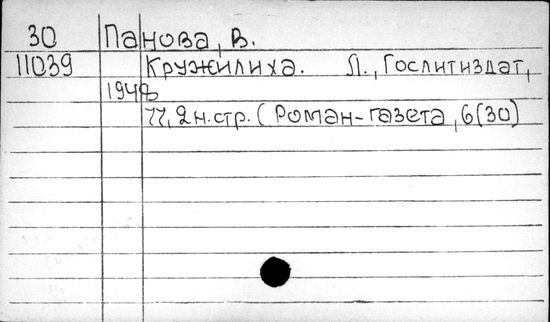 30 Панова, В.
11039 Кружилиха. Л., Гослитиздат,
1948
77, 2н.стр. (Роман-газета, 6(30)